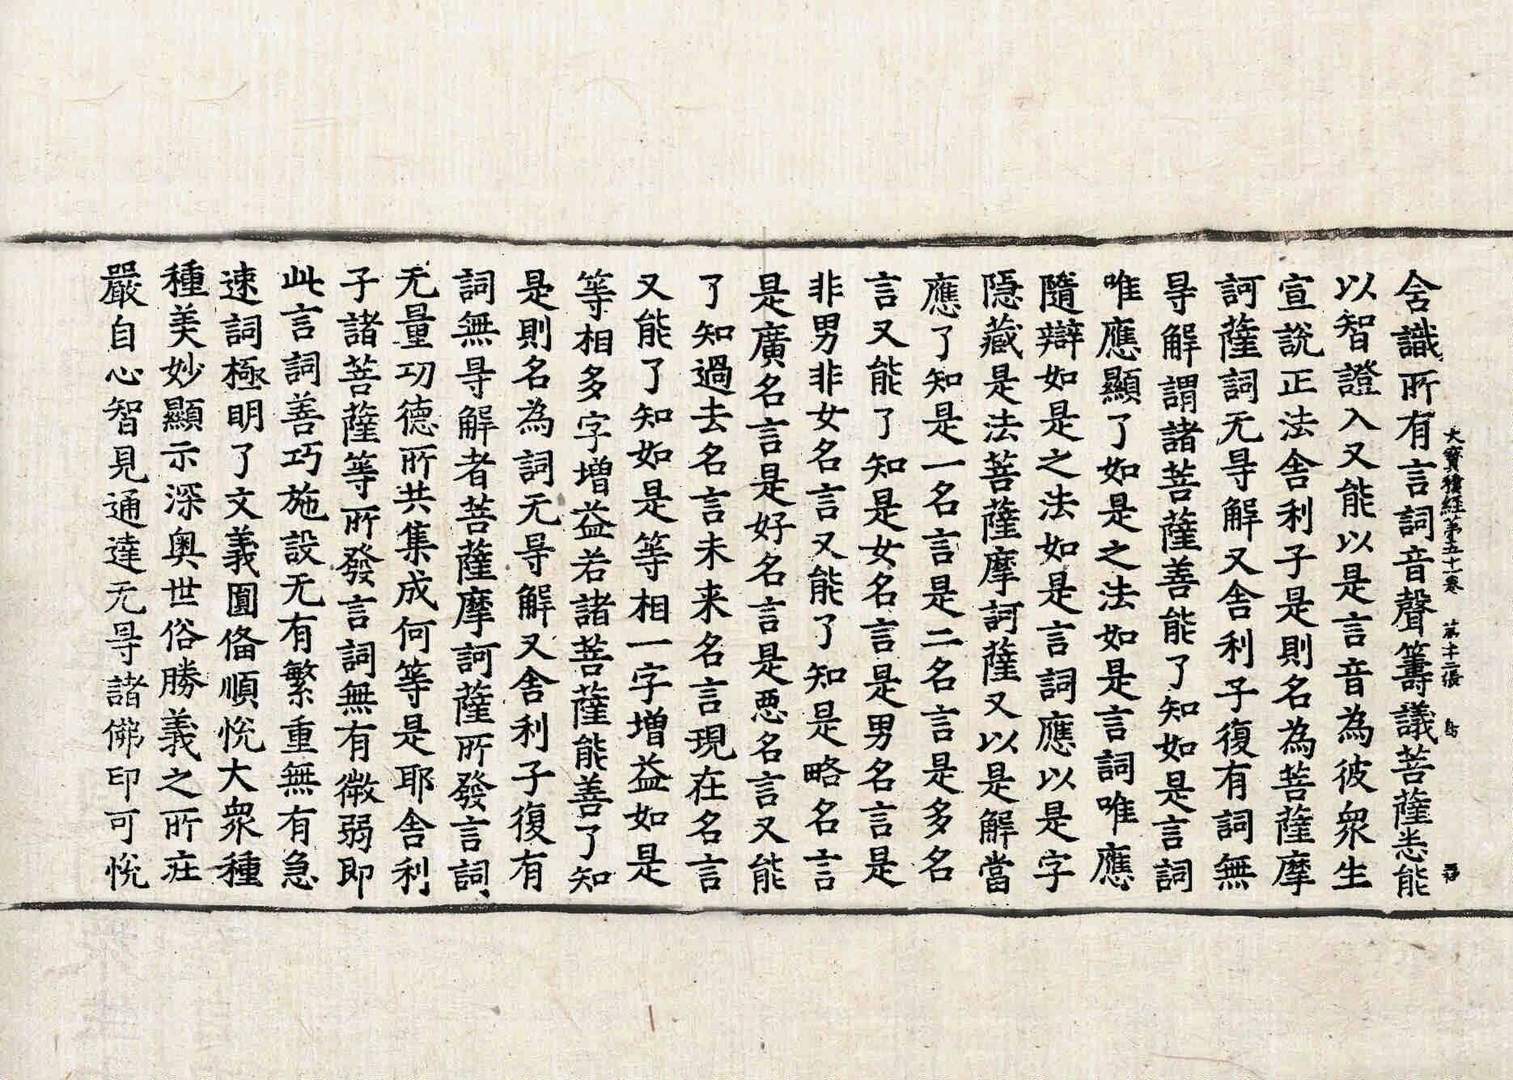 大寶積經第五十一卷 第十二張 鳥
含識所有言詞音聲籌議菩薩悉能
以智證入又能以是言音為彼衆生
宣說正法舍利子是則名為菩薩摩
訶薩詞无㝵解又舍利子復有詞無
㝵解謂諸菩薩善能了知如是言詞
唯應顯了如是之法如是言詞唯應
隨辯如是之法如是言詞應以是字
隱藏是法菩薩摩訶薩又以是解當
應了知是一名言是二名言是多名
言又能了知是女名言是男名言是
非男非女名言又能了知是略名言
是廣名言是好名言是惡名言又能
了知過去名言未来名言現在名言
又能了知如是等相一字增益如是
等相多字增益若諸菩薩能善了知
是則名為詞无㝵解又舍利子復有
詞無㝵解者菩薩摩訶薩所發言詞、
无量功德所共集成何等是耶舍利
子諸菩薩等所發言詞無有微弱即
此言詞善巧施設无有繁重無有急
速詞極明了文義圎俻順悅大衆種
種美妙顯示深奧世俗勝義之所庄
嚴自心智見通達无㝵諸佛印可悅